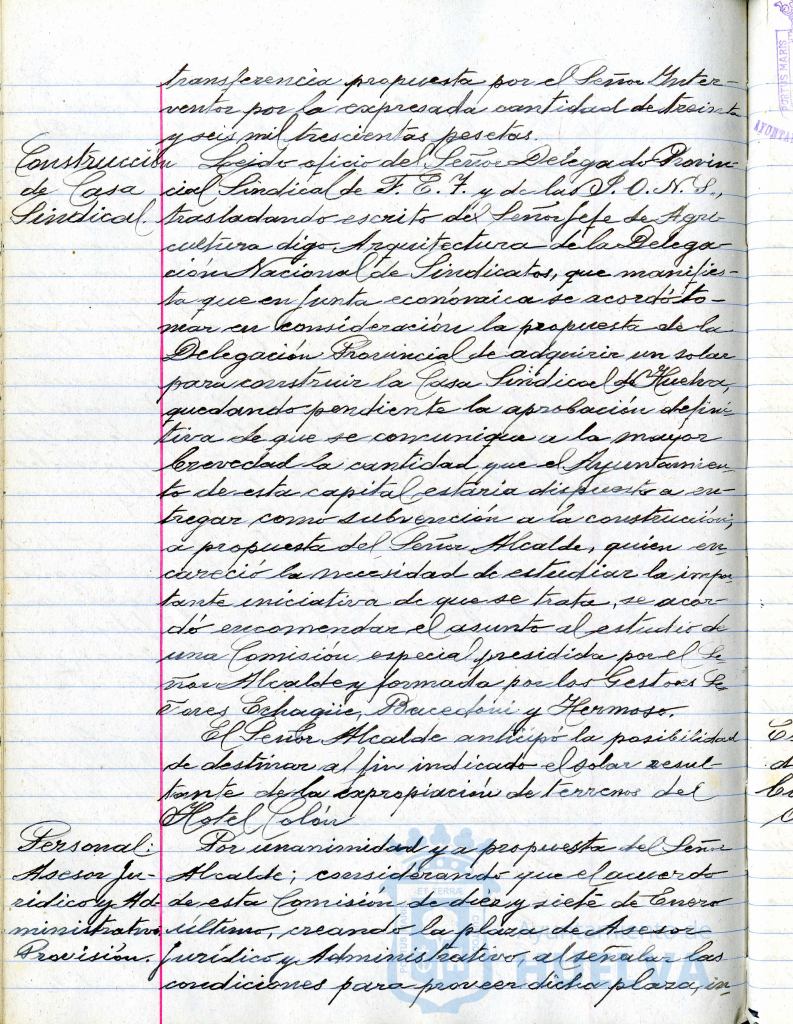 transferencia propuesta por el Señor Inter-
ventor por la expresada cantidad de treinta
y seis mil trescientas pesetas.
Construcción
de Casa
Sindical.
Leido oficio del Señor Delegado Provin-
cial Sindical de F. E. T. y de las J. O. N. S.,
trasladando escrito del Señor Jefe de Agri-
cultura digo, Arquitectura de la Delega-
ción Nacional de Sindicatos, que manifies-
ta que en Junta económica se acordó to-
mar en consideración la propuesta de la
Delegación Provincial de adquirir un solar
para construir la Casa Sindical de Huelva,
quedando pendiente la aprobación defini-
tiva de que se comunique a la mayor
brevedad la cantidad que el Ayuntamien-
to de esta capital estaria dispuesto a en-
tregar como subvención a la construcción,
a propuesta del Señor Alcalde, quien en-
careció la necesidad de estudiar la impor-
tante iniciativa de que se trata, se acor-
dó encomendar el asunto al estudio de
una Comisión especial presidida por el Se-
ñor Alcalde y formada por los Gestores Se-
ñores Echagüe, y Hermoso.
El Señor Alcalde anticipó la posibilidad
de destinar al fin indicado el solar resul-
tante de la expropiación de terrenos del
Hotel Colón
Personal:
Asesor Ju-
ridico y Ad-
ministrativo
Provisión.
Por unanimidad y a propuesta del Señor
Alcalde; considerando que el acuerdo
de esta Comisión de diez y siete de Enero
último, creando la plaza de Asesor
Jurídico y Administrativo, al señalar las
condiciones para proveer dicha plaza, in-
Ayuntamiento de
HUELVA
PORTUS MARIS